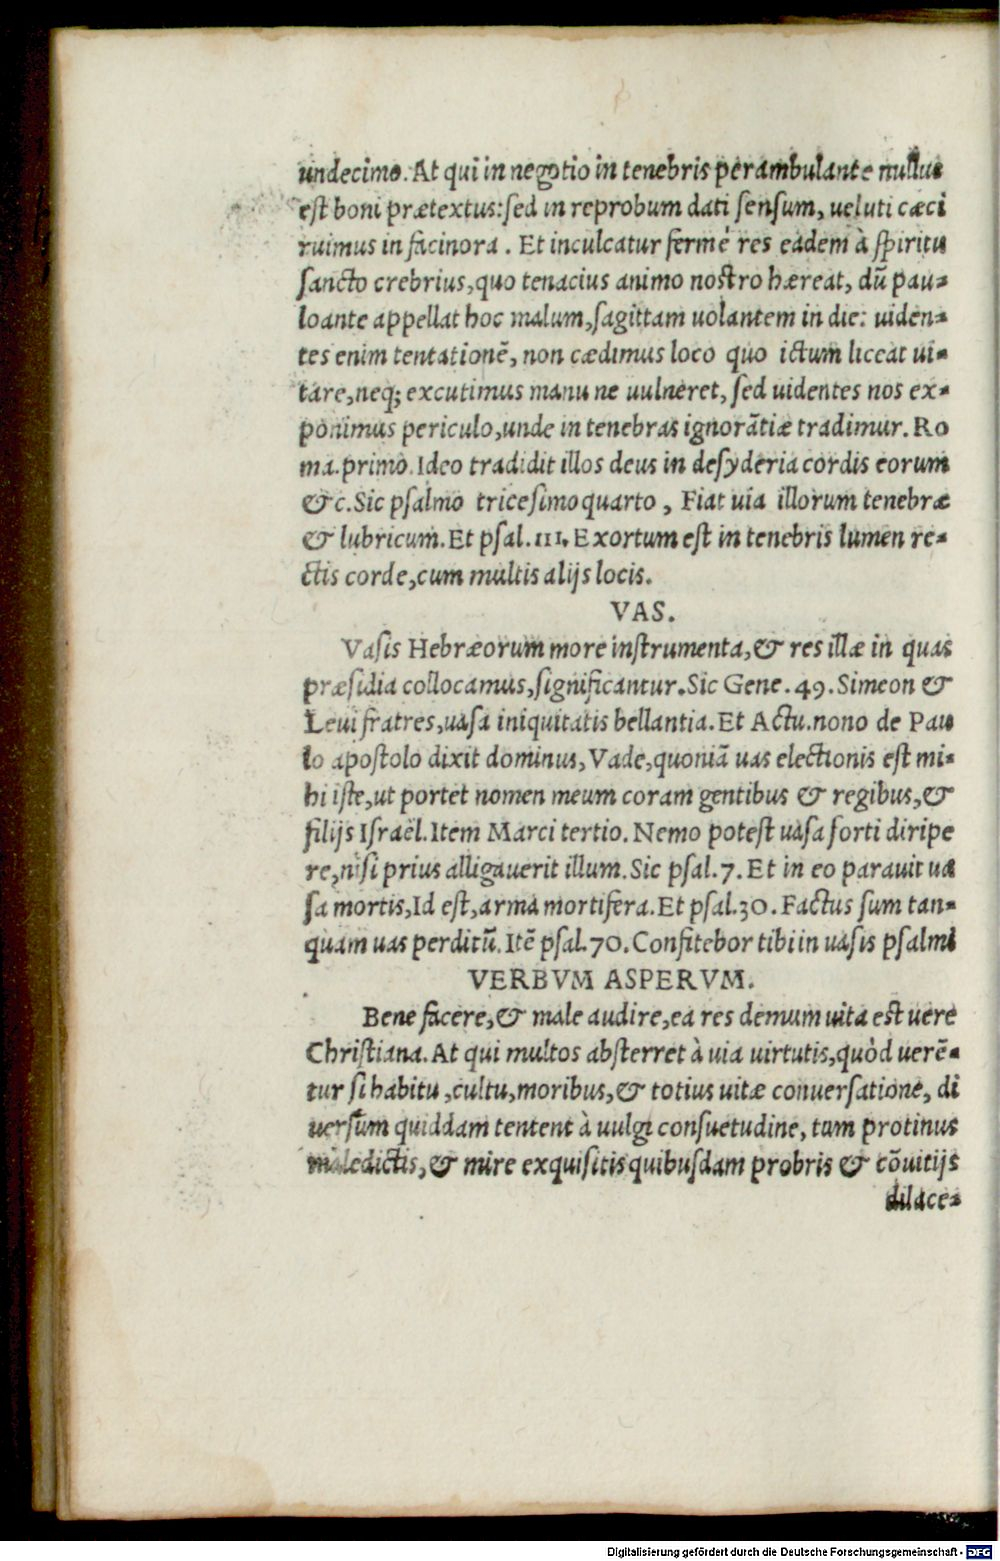 undecimo. At qui in negotio in tenebris perambulante nullus
est boni prætextus: sed in reprobum dati sensum, ueluti cæci
ruimus in facinora . Et inculcatur fermé res eadem à spiritu
sancto crebrius, quo tenacius animo nostro hæreat, dū pau-
loante appellat hoc malum, sagittam uolantem in die: uiden-
tes enim tentationē, non cædimus loco quo ictum liceat ui-
tare, neq; excutimus manu ne uulneret, sed uidentes nos ex-
ponimus periculo, unde in tenebras ignorātiæ tradimur. Ro
ma. primo. Ideo tradidit illos deus in desyderia cordis eorum
&c. Sic psalmo tricesimoquarto , Fiat uia illorum tenebræ
& lubricum. Et psal. 111. Exortum est in tenebris lumen re-
ctis corde, cum multis alijs locis.
VAS.
Vasis Hebræorum more instrumenta, & res illæ in quas
præsidia collocamus, significantur. Sic Gene. 49. Simeon &
Leui fratres, uasa iniquitatis bellantia. Et Actu. nono de Pau
lo apostolo dixit dominus, Vade, quoniā uas electionis est mi-
hi iste, ut portet nomen meum coram gentibus & regibus, &
filijs Israël. Item Marci tertio. Nemo potest uasa forti diripe
re, nisi prius alligauerit illum. Sic psal. 7. Et in eo parauit ua
sa mortis, Id est, arma mortifera. Et psal. 30. Factus sum tan-
quam uas perditū. Itē psal. 70. Confitebor tibi in uasis psalmi
VERBVM ASPERVM.
Bene facere, & male audire, ea res demum uita est uere
Christiana. At qui multos absterret à uia uirtutis, quòd uerē-
tur si habitu, cultu, moribus, & totius uitæ conuersatione, di
uersum quiddam tentent à uulgi consuetudine, tum protinus
maledictis, & mire exquisitis quibusdam probris & cōuitijs
dilace-
Digitalisierung gefördert durch die Deutsche Forschungsgemeinschaft - DFG